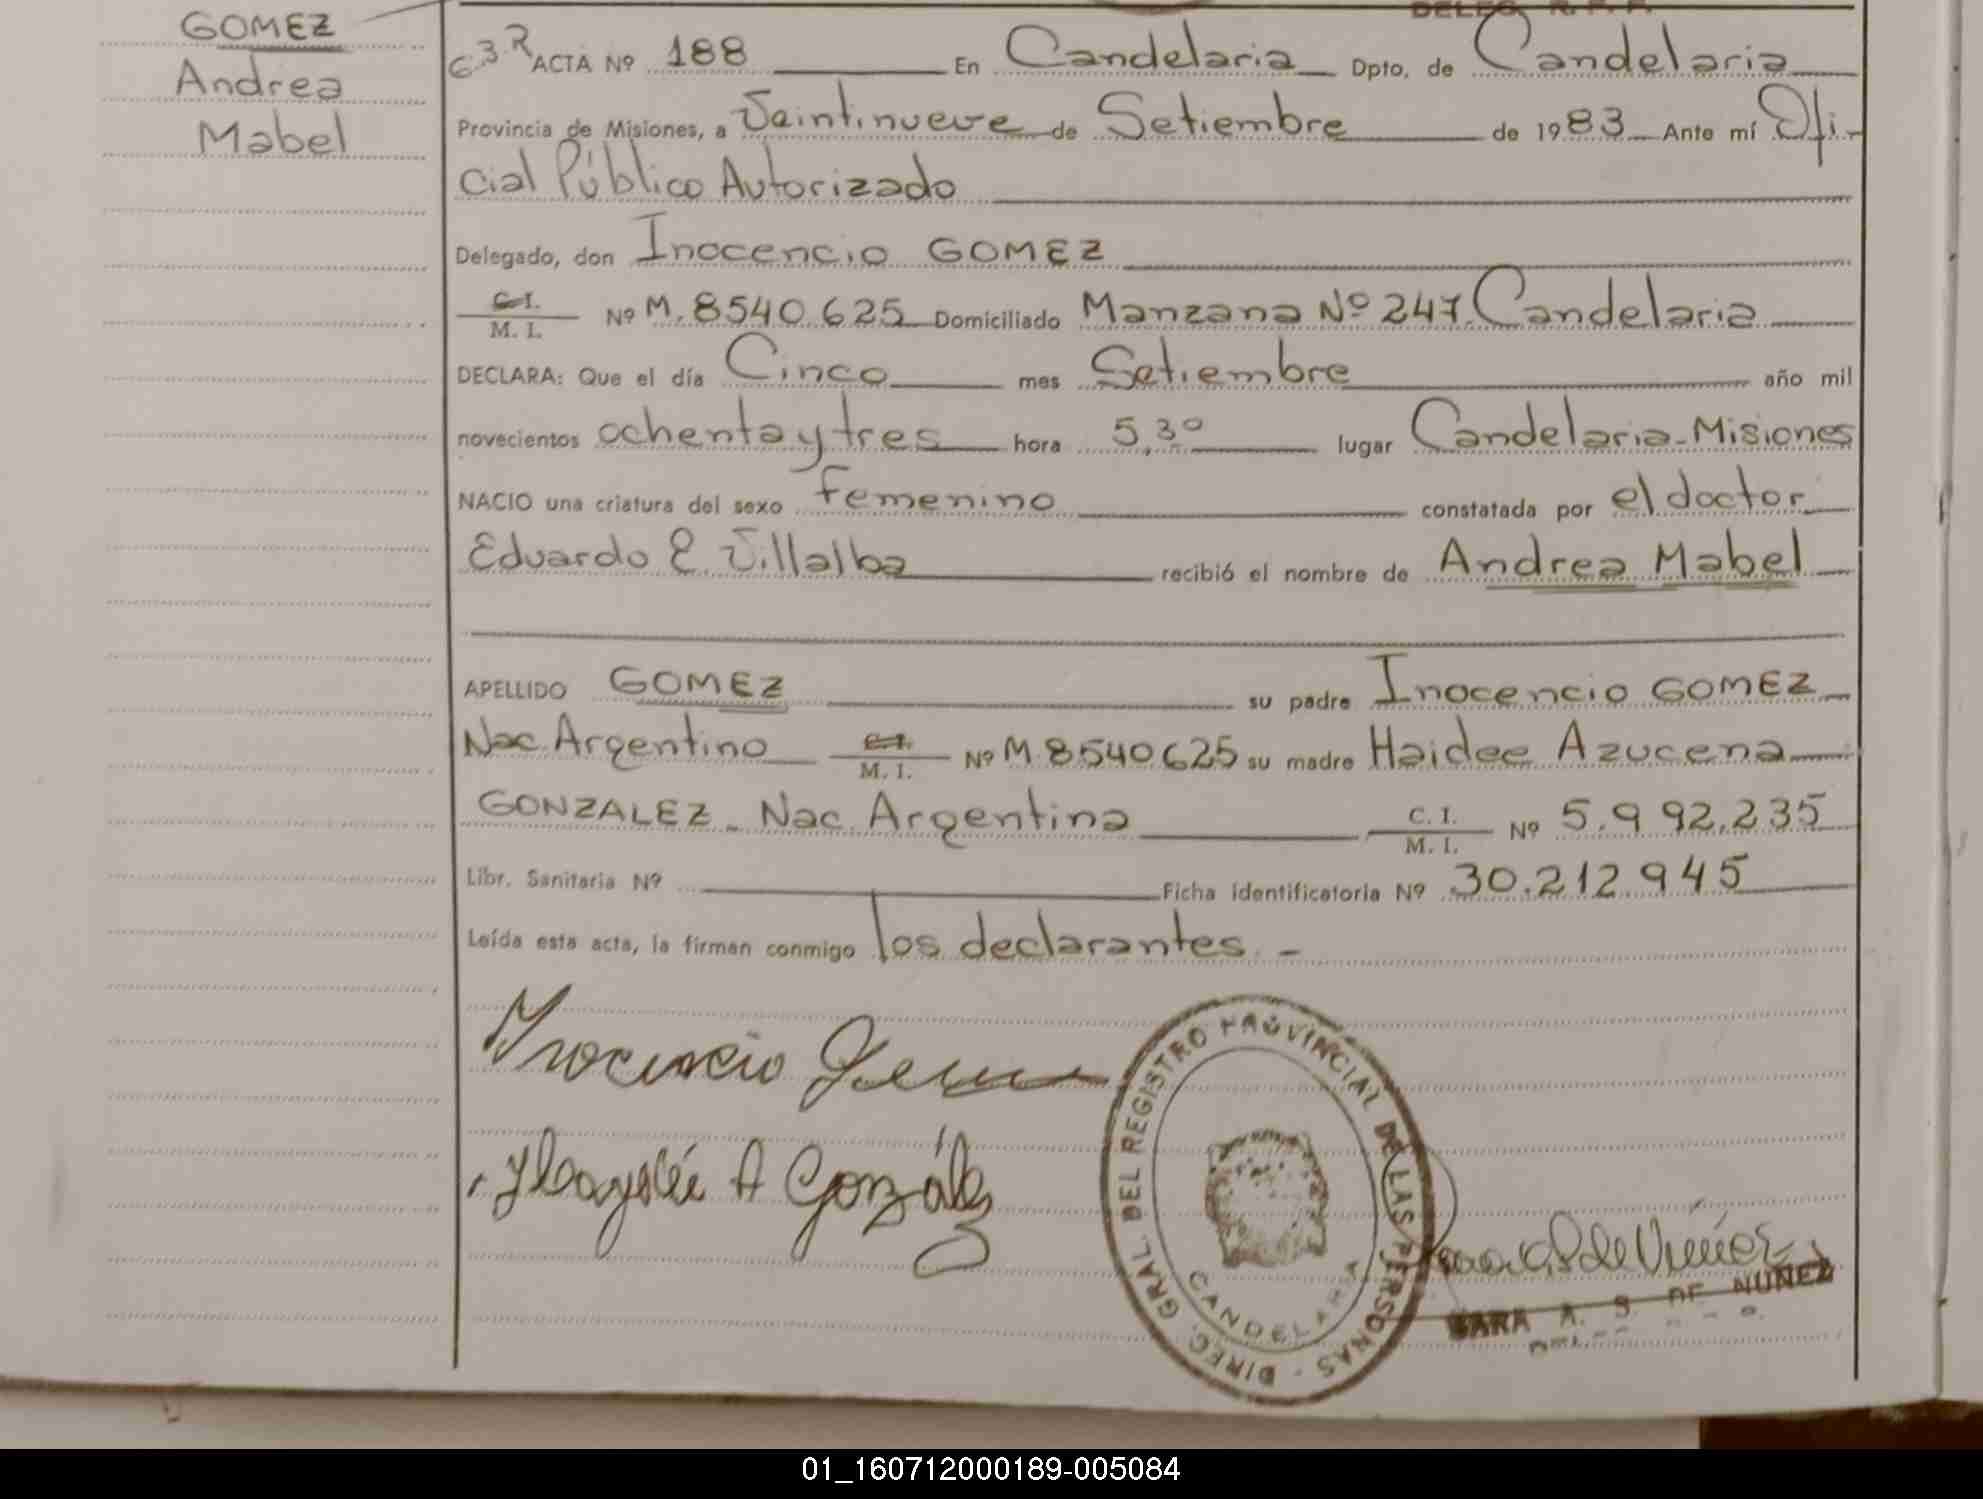 GOMEZ
Andrea
Mabel
DELEG. R. P. P.
C3R ACTA Nº 188 En Candelaria Dpto. de Candelaria
Provincia de Misiones, a Veintinueve de Setiembre de 1983 Ante mí Ofi-
cial Público Autorizado
Delegado, don Inocencio GOMEZ
C.I.
M. I. Nº M. 8540.625 Domiciliado Manzana Nº 247. Candelaria
DECLARA: Que el día Cinco mes Setiembre año mil
novecientos ochenta y tres hora 5,30 lugar Candelaria-Misiones
NACIO una criatura del sexo femenino constatada por el doctor
Eduardo E. Villalba recibió el nombre de Andrea Mabel
APELLIDO GOMEZ su padre Inocencio GOMEZ
Nac. Argentino C.I.
M. I. Nº M 8540.625 su madre Haidee Azucena
GONZALEZ - Nac. Argentina C. I.
M. I. Nº 5.992.235
Libr. Sanitaria Nº Ficha identificatoria Nº 30.212.945
Leída esta acta, la firman conmigo los declarantes. -
Inocencio
Haydée A González
DIREC. GRAL. DEL REGISTRO PROVINCIAL DE LAS PERSONAS -
CANDELARIA
SARA A. S. DE NUÑEZ
01_160712000189-005084